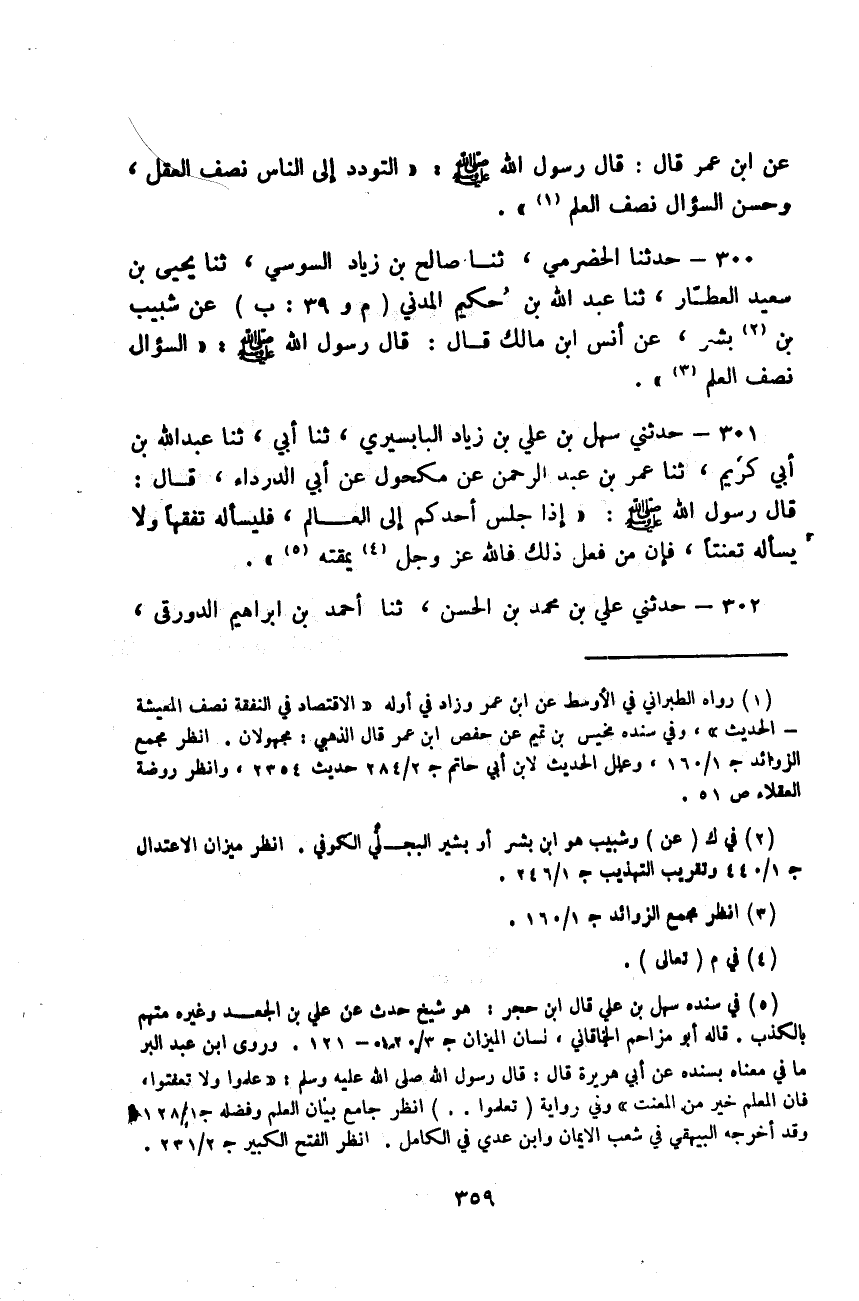 عن ابن عمر قال : قال رسول الله ﷺ : « التودد إلى الناس نصف العقل ،
وحسن السؤال نصف العلم (١) » .
٣٠٠ – حدثنا الحضرمي ، ثنا صالح بن زياد السوسي ، ثنا يحيى بن
سعيد العطّار ، ثنا عبد الله بن حُكيم المدني ( م و ٣٩ : ب ) عن شبيب
بن (٢) بشر ، عن أنس ابن مالك قال : قال رسول الله ﷺ : « السؤال
نصف العلم (٣) » .
٣٠١ – حدثني سهل بن علي بن زياد البابسيري ، ثنا أبي ، ثنا عبدالله بن
أبي كَرِيم ، ثنا عمر بن عبد الرحمن عن مكحول عن أبي الدرداء ، قال :
قال رسول الله ﷺ : « إذا جلس أحدكم إلى العالم ، فليسأله تفقهاً ولا
يسأله تعنتاً ، فإن من فعل ذلك فالله عز وجل (٤) يمقته (٥) » .
٣٠٢ – حدثني علي بن محمد بن الحسن ، ثنا أحمد بن ابراهيم الدورقى ،
(١) رواه الطبراني في الأوسط عن ابن عمر وزاد في أوله « الاقتصاد في النفقة نصف المعيشة
– الحديث » ، وفي سنده مخيس بن تميم عن حفص ابن عمر قال الذهبي : مجهولان . انظر مجمع
الزوائد ج ١/١٦٠ ، وعلل الحديث لابن أبي حاتم ج ٢/٢٨٤ حديث ٢٣٥٤ ، وانظر روضة
العقلاء ص ٥١ .
(٢) في ك ( عن ) وشبيب هو ابن بشر أو بشير البجلي الكوفي . انظر ميزان الاعتدال
ج ١/٤٤٠ وتقريب التهذيب ج ١/٢٤٦ .
(٣) انظر مجمع الزوائد ج ١/١٦٠ .
(٤) في م ( تعالى ) .
(٥) في سنده سهل بن علي قال ابن حجر : هو شيخ حدث عن علي بن الجعد وغيره متهم
بالكذب . قاله أبو مزاحم الخاقاني ، لسان الميزان ج ٣/ – ١٢١ . وروى ابن عبد البر
ما في معناه بسنده عن أبي هريرة قال : قال رسول الله صلى الله عليه وسلم : « علموا ولا تعنتوا،
فان المعلم خير من المعنت » وفي رواية ( تعلموا . . ) انظر جامع بيان العلم وفضله ج١/١٢٨
وقد أخرجه البيهقي في شعب الايمان وابن عدي في الكامل . انظر الفتح الكبير ج ٢/٢٣١ .
٣٥٩